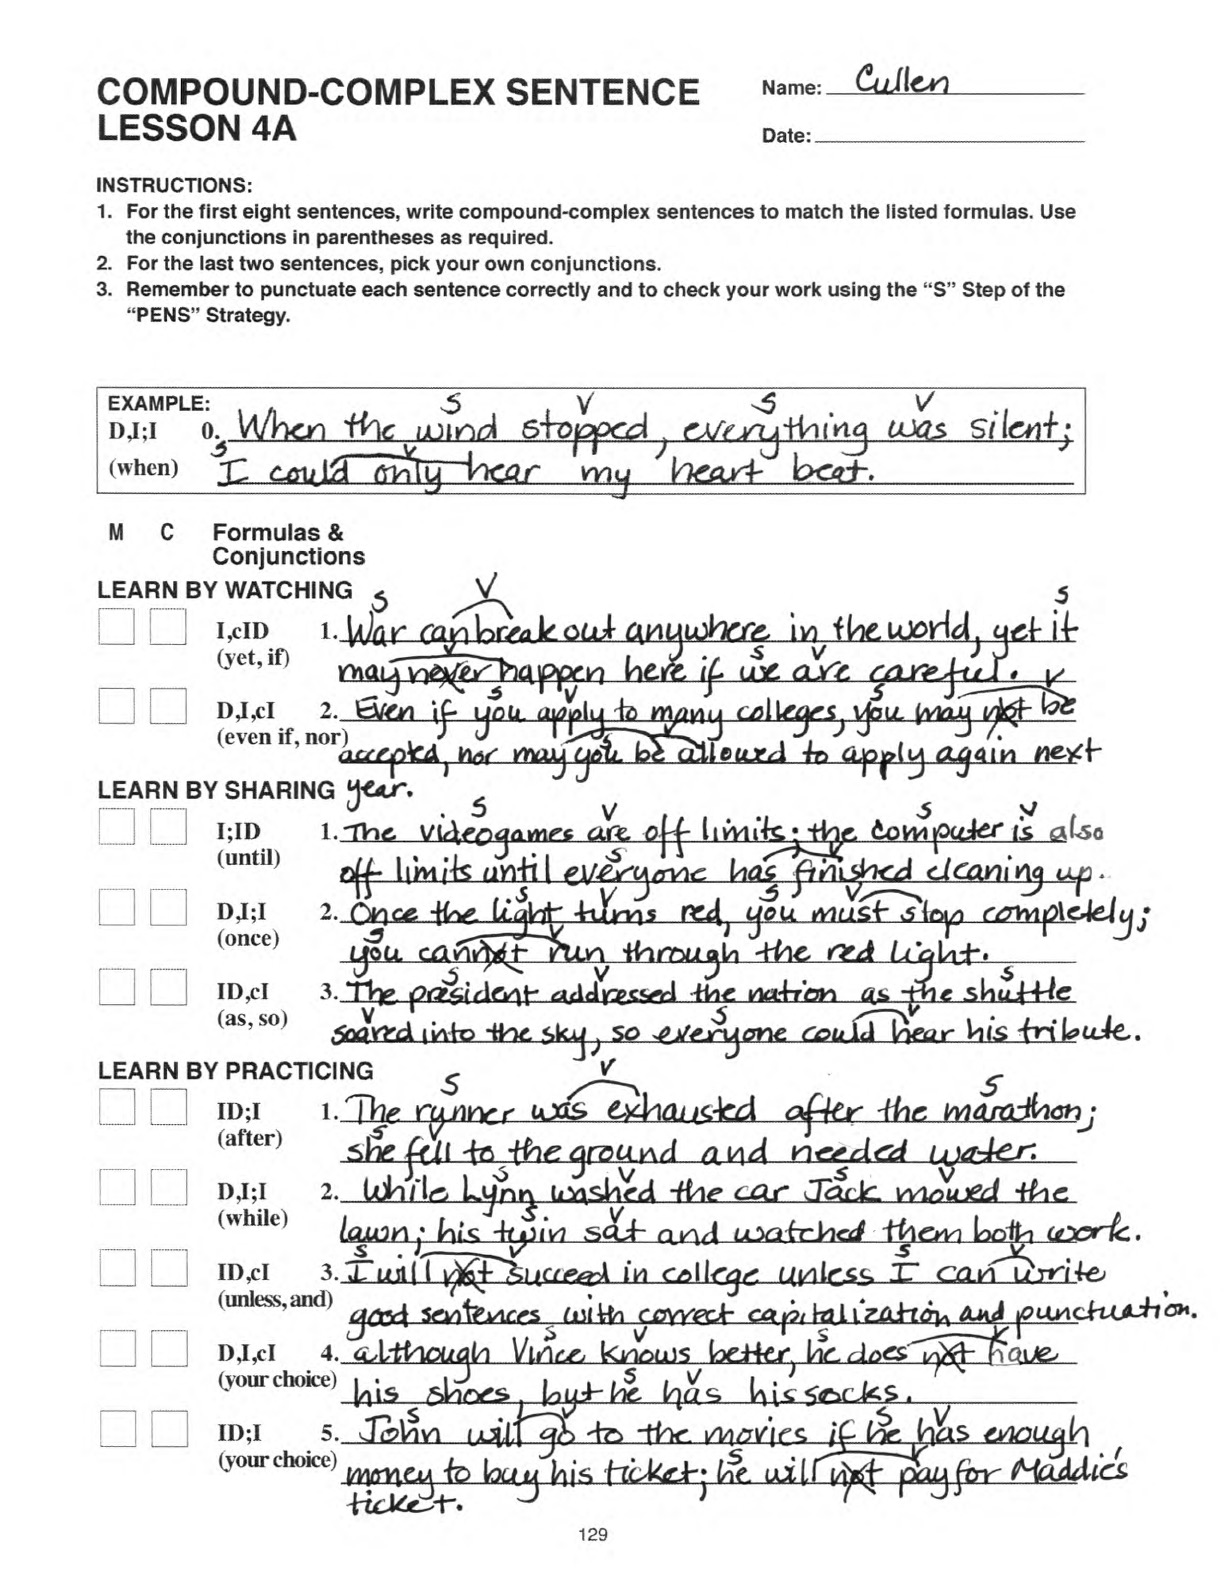 COMPOUND-COMPLEX SENTENCE
LESSON 4A
Name: Cullen
Date:
INSTRUCTIONS:
1. For the first eight sentences, write compound-complex sentences to match the listed formulas. Use
the conjunctions in parentheses as required.
2. For the last two sentences, pick your own conjunctions.
3. Remember to punctuate each sentence correctly and to check your work using the “S” Step of the
“PENS” Strategy.
EXAMPLE:
S V S V
D,I;I 0. When the wind stopped, everything was silent;
S V
(when) I could only hear my heart beat.
M C Formulas &
Conjunctions
LEARN BY WATCHING
S V S
I,cID 1. War can break out anywhere in the world, yet it
V S V
(yet, if) may never happen here if we are careful.
S V S V
D,I,cI 2. Even if you apply to many colleges, you may not be
S V
(even if, nor) accepted, nor may you be allowed to apply again next
LEARN BY SHARING year.
S V S V
I;ID 1. The videogames are off limits; the computer is also
S V
(until) off limits until everyone has finished cleaning up.
S V S V
D,I;I 2. Once the light turns red, you must stop completely;
S V
(once) you cannot run through the red light.
S V S
ID,cI 3. The president addressed the nation as the shuttle
V S V
(as, so) soared into the sky, so everyone could hear his tribute.
LEARN BY PRACTICING
S V S
ID;I 1. The runner was exhausted after the marathon;
S V
(after) she fell to the ground and needed water.
S V S V
D,I;I 2. While Lynn washed the car Jack mowed the
S V
(while) lawn; his twin sat and watched them both work.
S V S V
ID,cI 3. I will not succeed in college unless I can write
(unless, and) good sentences with correct capitalization and punctuation.
S V S V
D,I,cI 4. although Vince knows better, he does not have
S V
(your choice) his shoes, but he has his socks.
S V S V
ID;I 5. John will go to the movies if he has enough
S V
(your choice) money to buy his ticket; he will not pay for Maddie's
ticket.
129